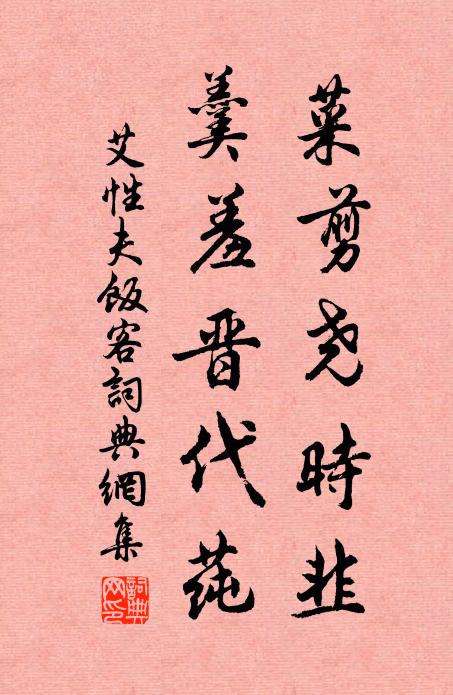 菜剪尧時韭
羹羞晋代莼
艾性夫飯客詞典網集
詞典網印